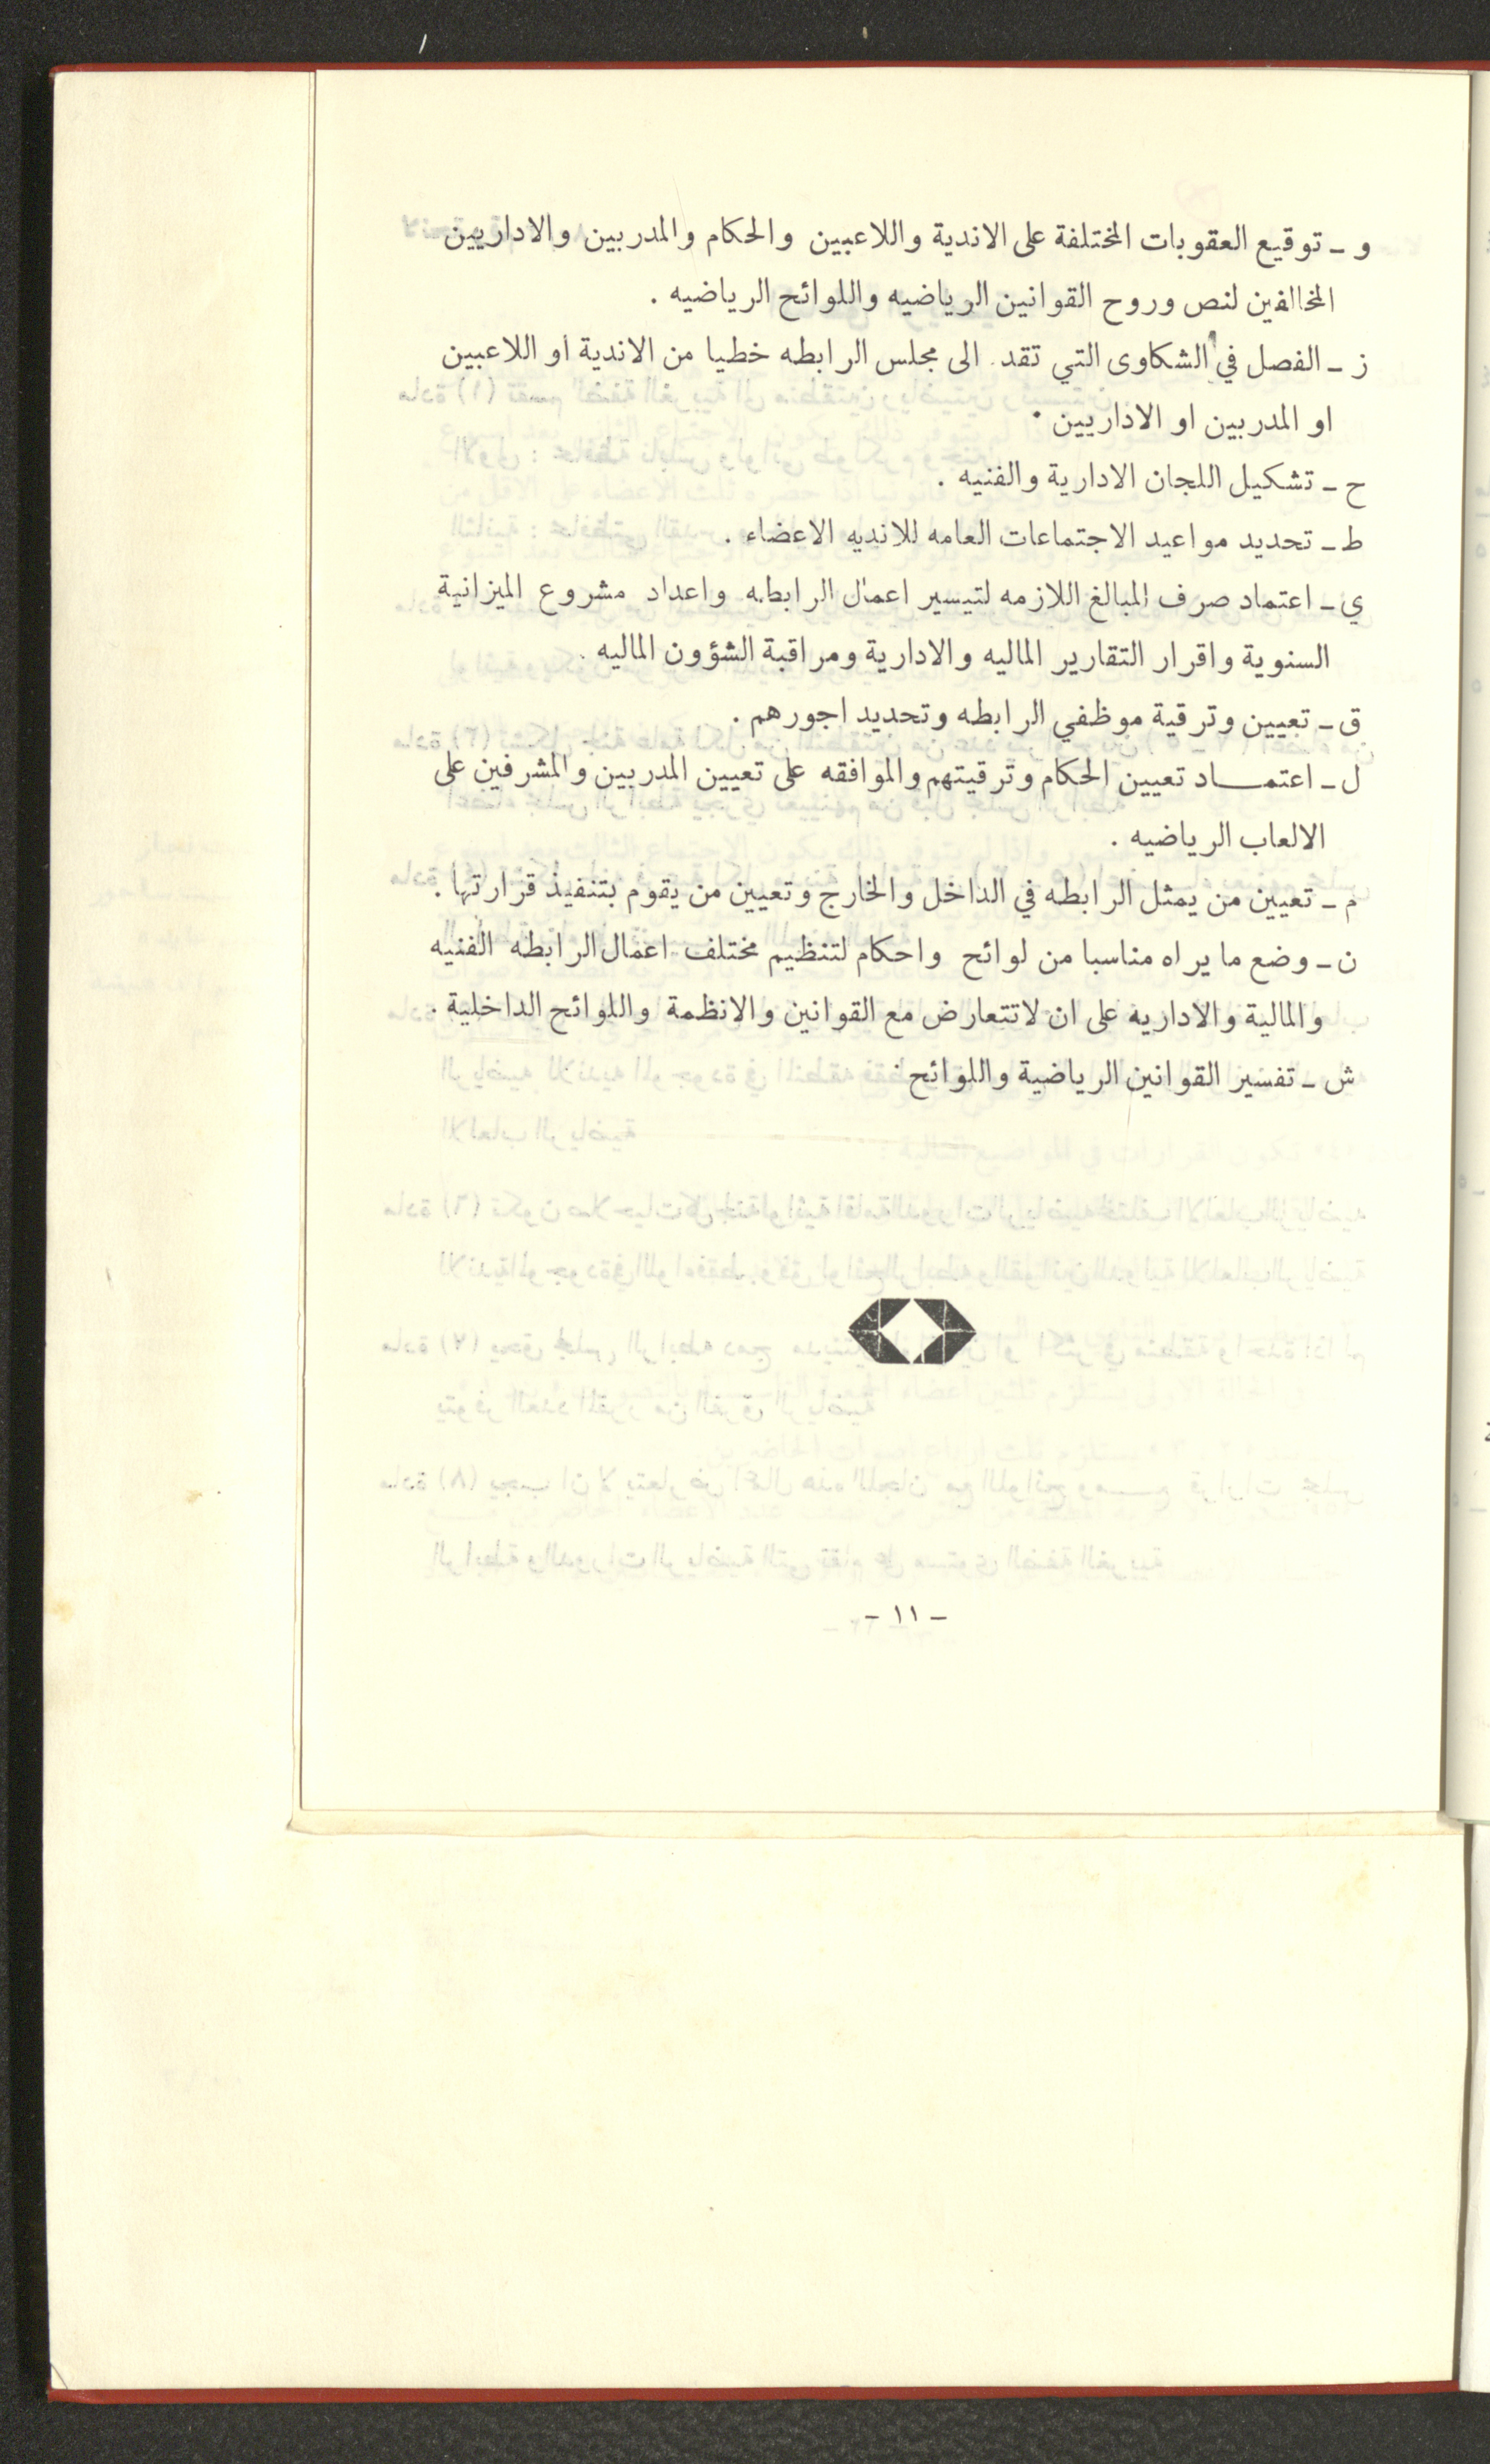 و ـ توقيع العقوبات المختلفة على الاندية واللاعبين والحكام والمدربين والاداريين
المخالفين لنص وروح القوانين الرياضيه واللوائح الرياضيه .
ز ـ الفصل في الشكاوى التي تقد الى مجلس الرابطه خطيا من الاندية او اللاعبين
او المدربين او الاداريين .
ح ـ تشكيل اللجان الادارية والفنيه .
ط ـ تحديد مواعيد الاجتماعات العامه للانديه الاعضاء .
ي ـ اعتماد صرف المبالغ اللازمه لتيسير اعمال الرابطه واعداد مشروع الميزانية
السنوية واقرار التقارير الماليه والادارية ومراقبة الشؤون الماليه .
ق ـ تعيين وترقية موظفي الرابطه وتحديد اجورهم .
ل ـ اعتمـــاد تعيين الحكام وترقيتهم والموافقه على تعيين المدربين والمشرفين على
الالعاب الرياضيه .
م ـ تعيين من يمثل الرابطه في الداخل والخارج وتعيين من يقوم بتنفيذ قرارتها .
ن ـ وضع ما يراه مناسبا من لوائح واحكام لتنظيم مختلف اعمال الرابطه الفنيه
والمالية والاداريه على ان لاتتعارض مع القوانين والانظمة واللوائح الداخلية .
ش ـ تفسير القوانين الرياضية واللوائح .
- ١١ -